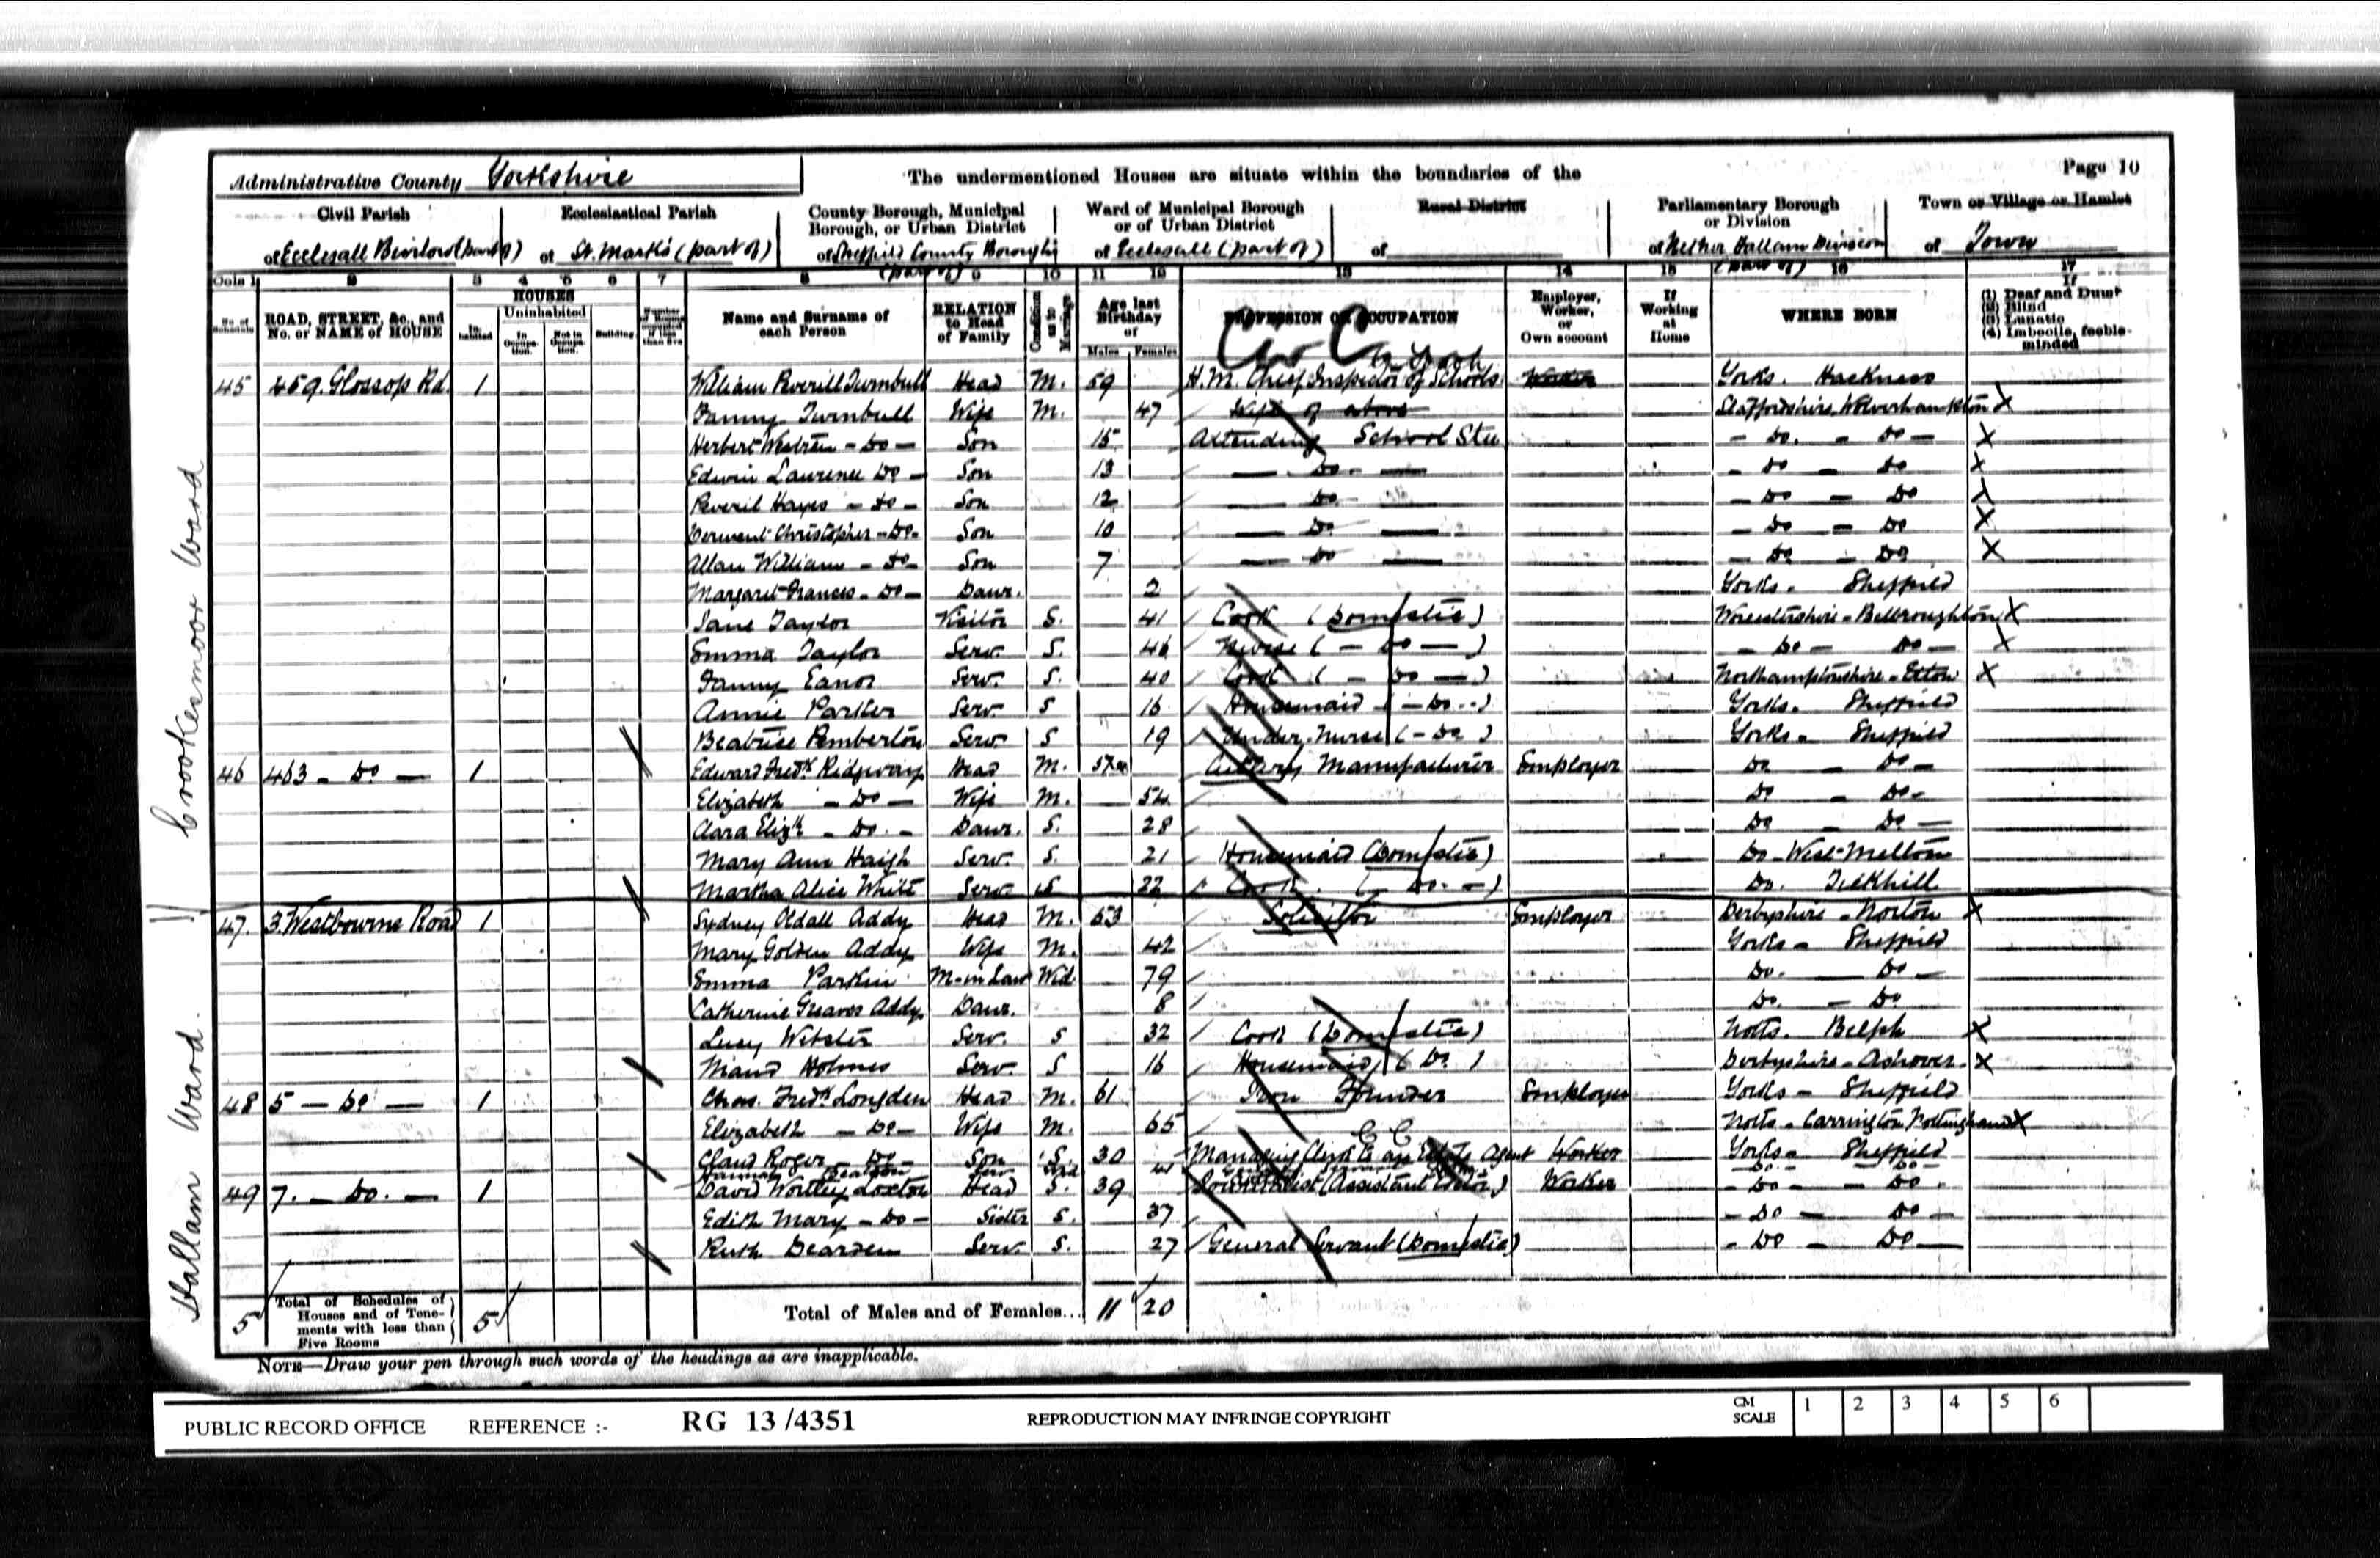 Administrative County Yorkshire
The undermentioned Houses are situate within the boundaries of the
Page 10
Civil Parish
of Ecclesall Bierlow (part of)
Ecclesiastical Parish
of St. Mark's (part of)
County Borough, Municipal Borough, or Urban District
of Sheffield County Borough (part of)
Ward of Municipal Borough or of Urban District
of Ecclesall (part of)
Rural District
of
Parliamentary Borough or Division
of Nether Hallam Division (part of)
Town or Village or Hamlet
of Town
Cols 1 2 3 4 5 6 7 8 9 10 11 12 13 14 15 16 17
No. of Schedule
ROAD, STREET, &c., and No. or NAME of HOUSE
HOUSES
Inhabited
Uninhabited
In Occupation.
Not in Occupation.
Building
Name and Surname of each Person
RELATION to Head of Family
Condition as to Marriage
Age last Birthday of
Males Females
PROFESSION OR OCCUPATION
Employer, Worker, or Own account
If Working at Home
WHERE BORN
If
(1) Deaf and Dumb
(2) Blind
(3) Lunatic
(4) Imbecile, feeble-minded
45 459. Glossop Rd. 1 William Peverill Turnbull Head M. 59 H.M. Chief Inspector of Schools Worker Yorks. Hackness
Fanny Turnbull Wife M. 47 Wife of above Staffordshire, Wolverhampton X
Herbert - Do - Son 15 Attending School Stu - Do. - Do - X
Edwin Laurence Do - Son 13 - Do - - Do - Do X
Peveril Hayes - Do - Son 12 Do - Do - Do X
Derwent Christopher - Do - Son 10 - Do - - Do - Do X
Allan William - Do - Son 7 - Do - - Do - Do X
Margaret Frances - Do - Daur. 2 Yorks. Sheffield
Jane Taylor Visitor S. 41 Cook (Domestic) Worcestershire - Bellbroughton X
Emma Taylor Serv. S. 46 Nurse ( - Do - ) - Do - Do - X
Fanny Serv. S. 40 Cook ( - Do - ) Northamptonshire - Etton X
Annie Parker Serv. S 16 Housemaid ( - Do - ) Yorks. Sheffield
Beatrice Pemberton Serv. S 19 Under-Nurse ( - Do ) Yorks - Sheffield
46 463 - Do - 1 Edward Fredk. Ridgway Head M. 57 Cutlery Manufacturer Employer Do - Do -
Elizabeth - Do - Wife M. 54 Do - Do -
Clara Elizh. - Do - Daur. S. 28 Do - Do -
Mary Ann Haigh Serv. S. 21 Housemaid (Domestic) Do - West Melton
Martha Alice White Serv. S 22 Cook ( - Do - ) Do. Tickhill
47 3 Westbourne Road 1 Sydney Oldall Addy Head M. 53 Solicitor Employer Derbyshire - Norton X
Mary Golden Addy Wife M. 42 Yorks - Sheffield
Emma Parkin M-in Law Wid. 79 Do. - Do -
Catherine Greaves Addy Daur. 8 Do. - Do
Lucy Webster Serv. S 32 Cook (Domestic) Notts. Belph X
Maud Holmes Serv. S 16 Housemaid ( Do. ) Derbyshire - Ashover - X
48 5 - Do - 1 Chas. Fredk. Longden Head M. 61 Iron Founder Employer Yorks - Sheffield
Elizabeth - Do - Wife M. 65 Notts - Carrington, Nottingham X
Claud Roger - Do - Son S. 30 Managing Clerk to an Estate Agent Worker Yorks - Sheffield
Hannah Serv. Wid. 41 General Servant - Do - - Do -
49 7. - Do. - 1 David Wortley Loxton Head S. 39 Journalist (Assistant Editor) Worker - Do - - Do -
Edith Mary - Do - Sister S. 37 - Do - Do -
Ruth Dearden Serv. S. 27 General Servant (Domestic) - Do - Do -
5 Total of Schedules of Houses and of Tenements with less than Five Rooms 5
Total of Males and of Females... 11 20
NOTE—Draw your pen through such words of the headings as are inapplicable.
Hallam Ward. Crookesmoor Ward
PUBLIC RECORD OFFICE REFERENCE :- RG 13 /4351 REPRODUCTION MAY INFRINGE COPYRIGHT
CM SCALE 1 2 3 4 5 6